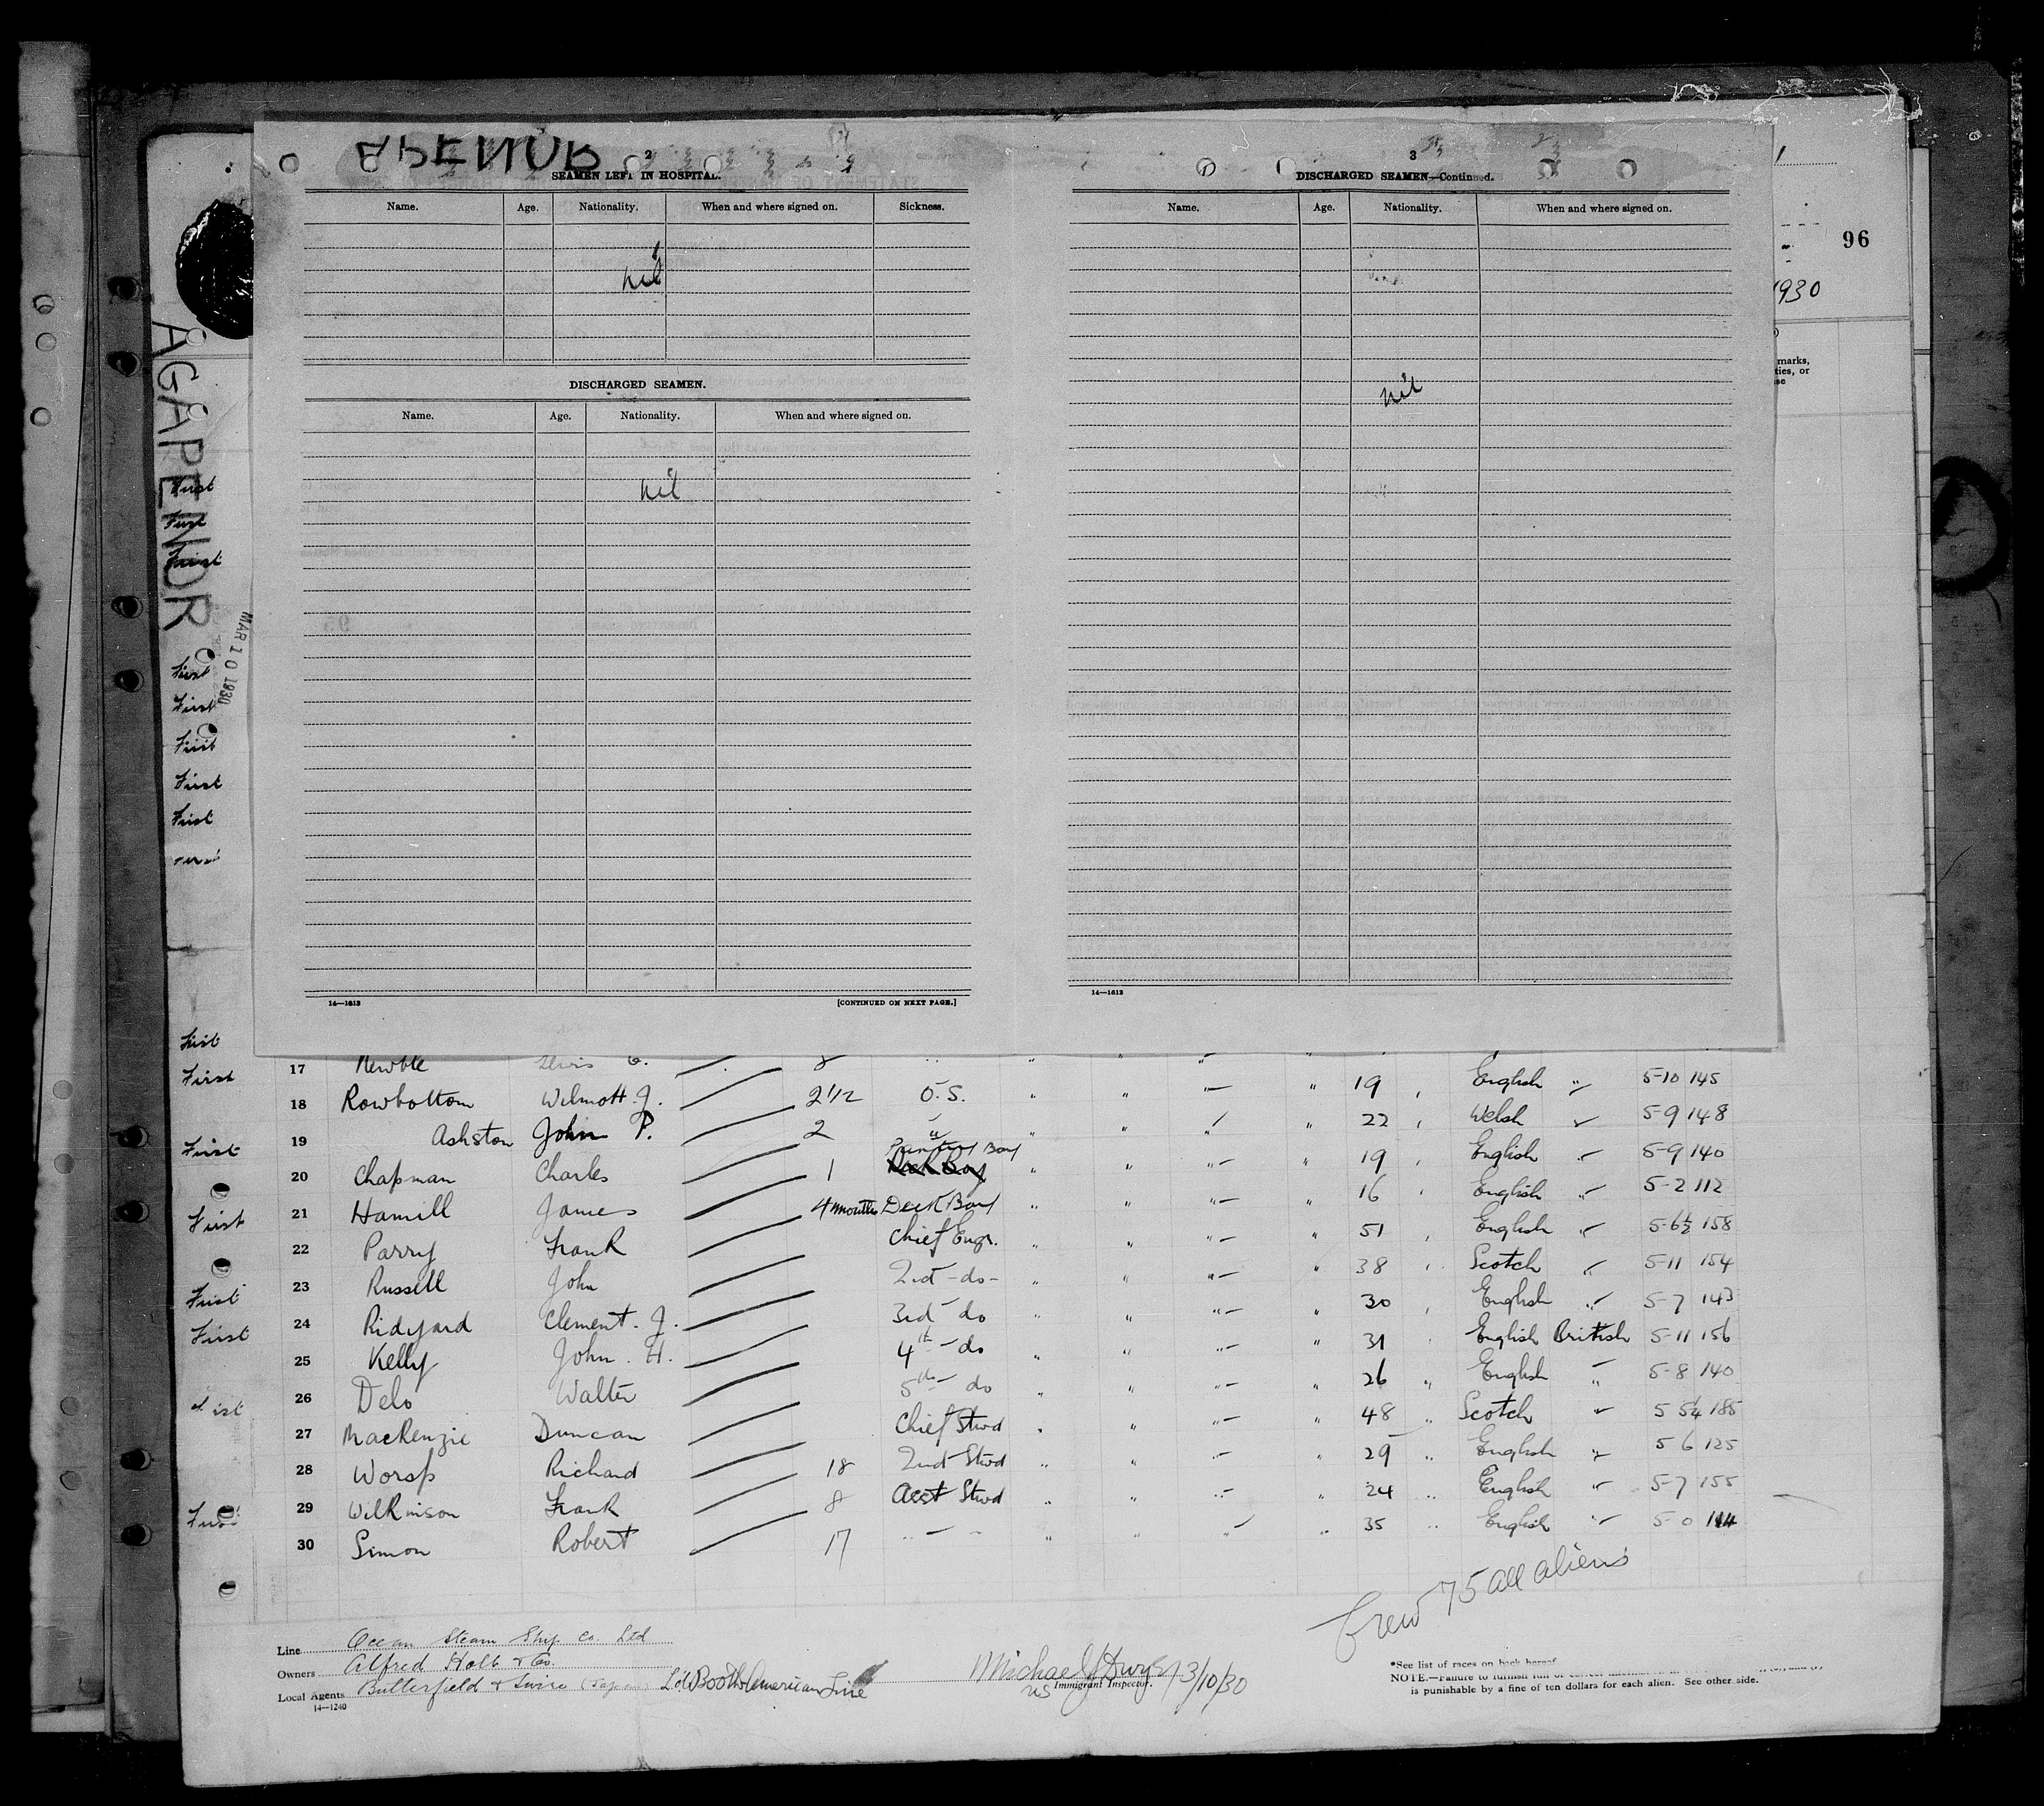 2
SEAMEN LEFT IN HOSPITAL.
Name. Age. Nationality. When and where signed on. Sickness.
nil
DISCHARGED SEAMEN.
Name. Age. Nationality. When and where signed on.
nil
14—1613 [CONTINUED ON NEXT PAGE.]
3
DISCHARGED SEAMEN—Continued.
Name. Age. Nationality. When and where signed on.
nil
14—1613
96
1930
marks,
ties, or
se
AGAPENOR
MAR 10 1930
First
First
First
First
First
First
First
First
First
First
First
17 Newble
First 18 Rowbottom Wilmott. J. 2 1/2 O.S. " " " 19 " English " 5-10 145
19 Ashston John P. 2 " " " " 22 " Welsh " 5-9 148
First 20 Chapman Charles 1 Deck Boy " " " 19 " English " 5-9 140
21 Hamill James 4 months Deck Boy " " " 16 " English " 5-2 112
First 22 Parry Frank Chief Engr. " " " 51 " English " 5-6½ 158
23 Russell John 2nd -do- " " " 38 " Scotch " 5-11 154
First 24 Ridyard Clement. J. 3rd do " " 30 " English " 5-7 143
First 25 Kelly John. H. 4th - do " " " 31 " English British 5-11 156
26 Delo Walter 5th do " " " 26 " English " 5-8 140
27 MacKenzie Duncan Chief Stwd " " " 48 " Scotch " 5 5¼ 185
28 Worsp Richard 18 2nd Stwd " " " 29 " English " 5 6 125
29 Wilkinson Frank 8 Asst Stwd " " " 24 " English " 5-7 155
30 Simon Robert 17 " " " " 35 " English " 5-0 114
Crew 75 all aliens
Line Ocean Steam Ship Co. Ltd
Owners Alfred Holt & Co.
Local Agents Butterfield & Swire (Japan) Ltd Booth American Line
14—1240
Michael J Dwyer 3/10/30
US Immigrant Inspector.
*See list of races on back hereof.
NOTE.—Failure to furnish full or correct
is punishable by a fine of ten dollars for each alien. See other side.